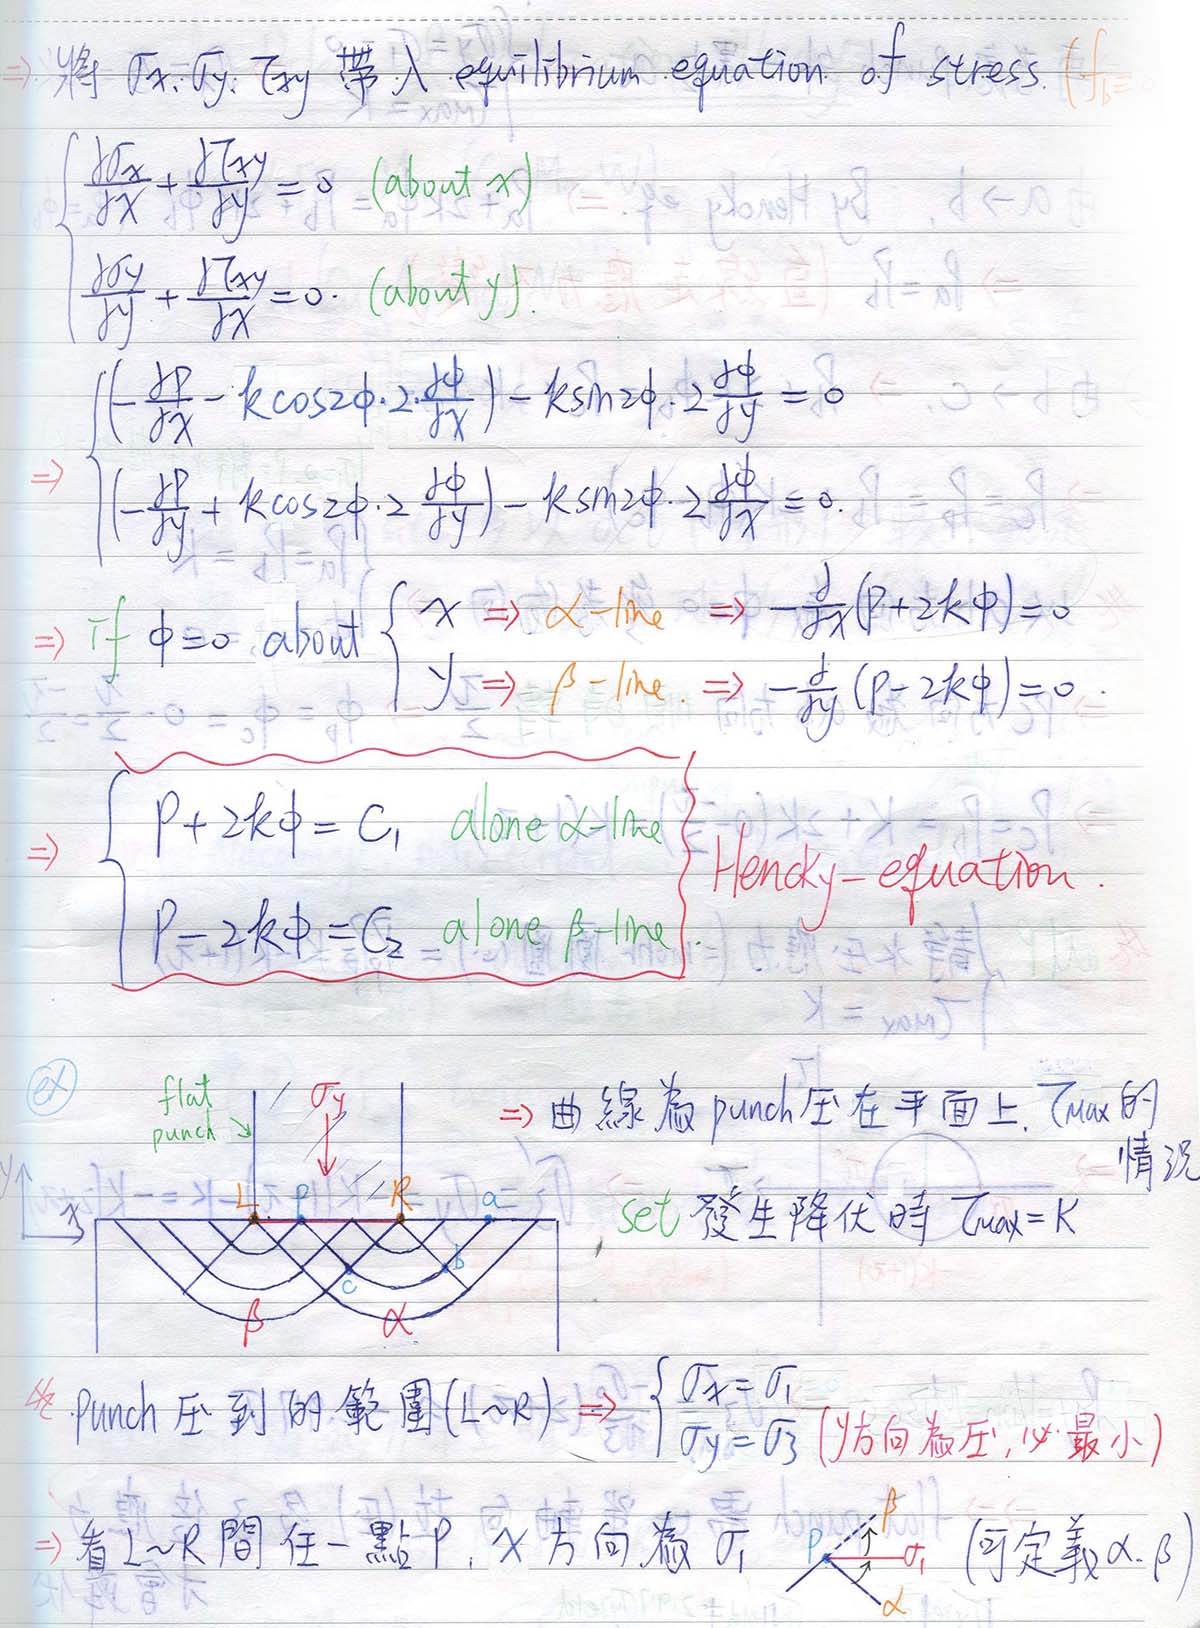 ⇒ 將 σx, σy, τxy 帶入 equilibrium equation of stress. (fb=0)
∂σx/∂x + ∂τxy/∂y = 0 (about x)
∂σy/∂y + ∂τxy/∂x = 0. (about y).
⇒ (-∂P/∂x - k cos2φ·2·∂φ/∂x) - k sin2φ·2 ∂φ/∂y = 0
(-∂P/∂y + k cos2φ·2 ∂φ/∂y) - k sin2φ·2 ∂φ/∂x = 0.
⇒ if φ=0 about x ⇒ α-line ⇒ -∂/∂x (P+2kφ)=0
y ⇒ β-line ⇒ -∂/∂y (P-2kφ)=0.
⇒ P+2kφ = C1 alone α-line
P-2kφ = C2 alone β-line.
Hencky-equation.
ex
flat punch
σy
⇒ 曲線為 punch 压在平面上, τmax 的
情況
y
x
L P R a
set 發生降伏時 τmax = K
c b
β α
punch 压到的範圍 (L~R) ⇒ σx = σ1
σy = σ3 (y方向為压, 必最小)
⇒ 看 L~R 間任一點 P, x 方向為 σ1
P β σ1 α
(可定義 α. β)